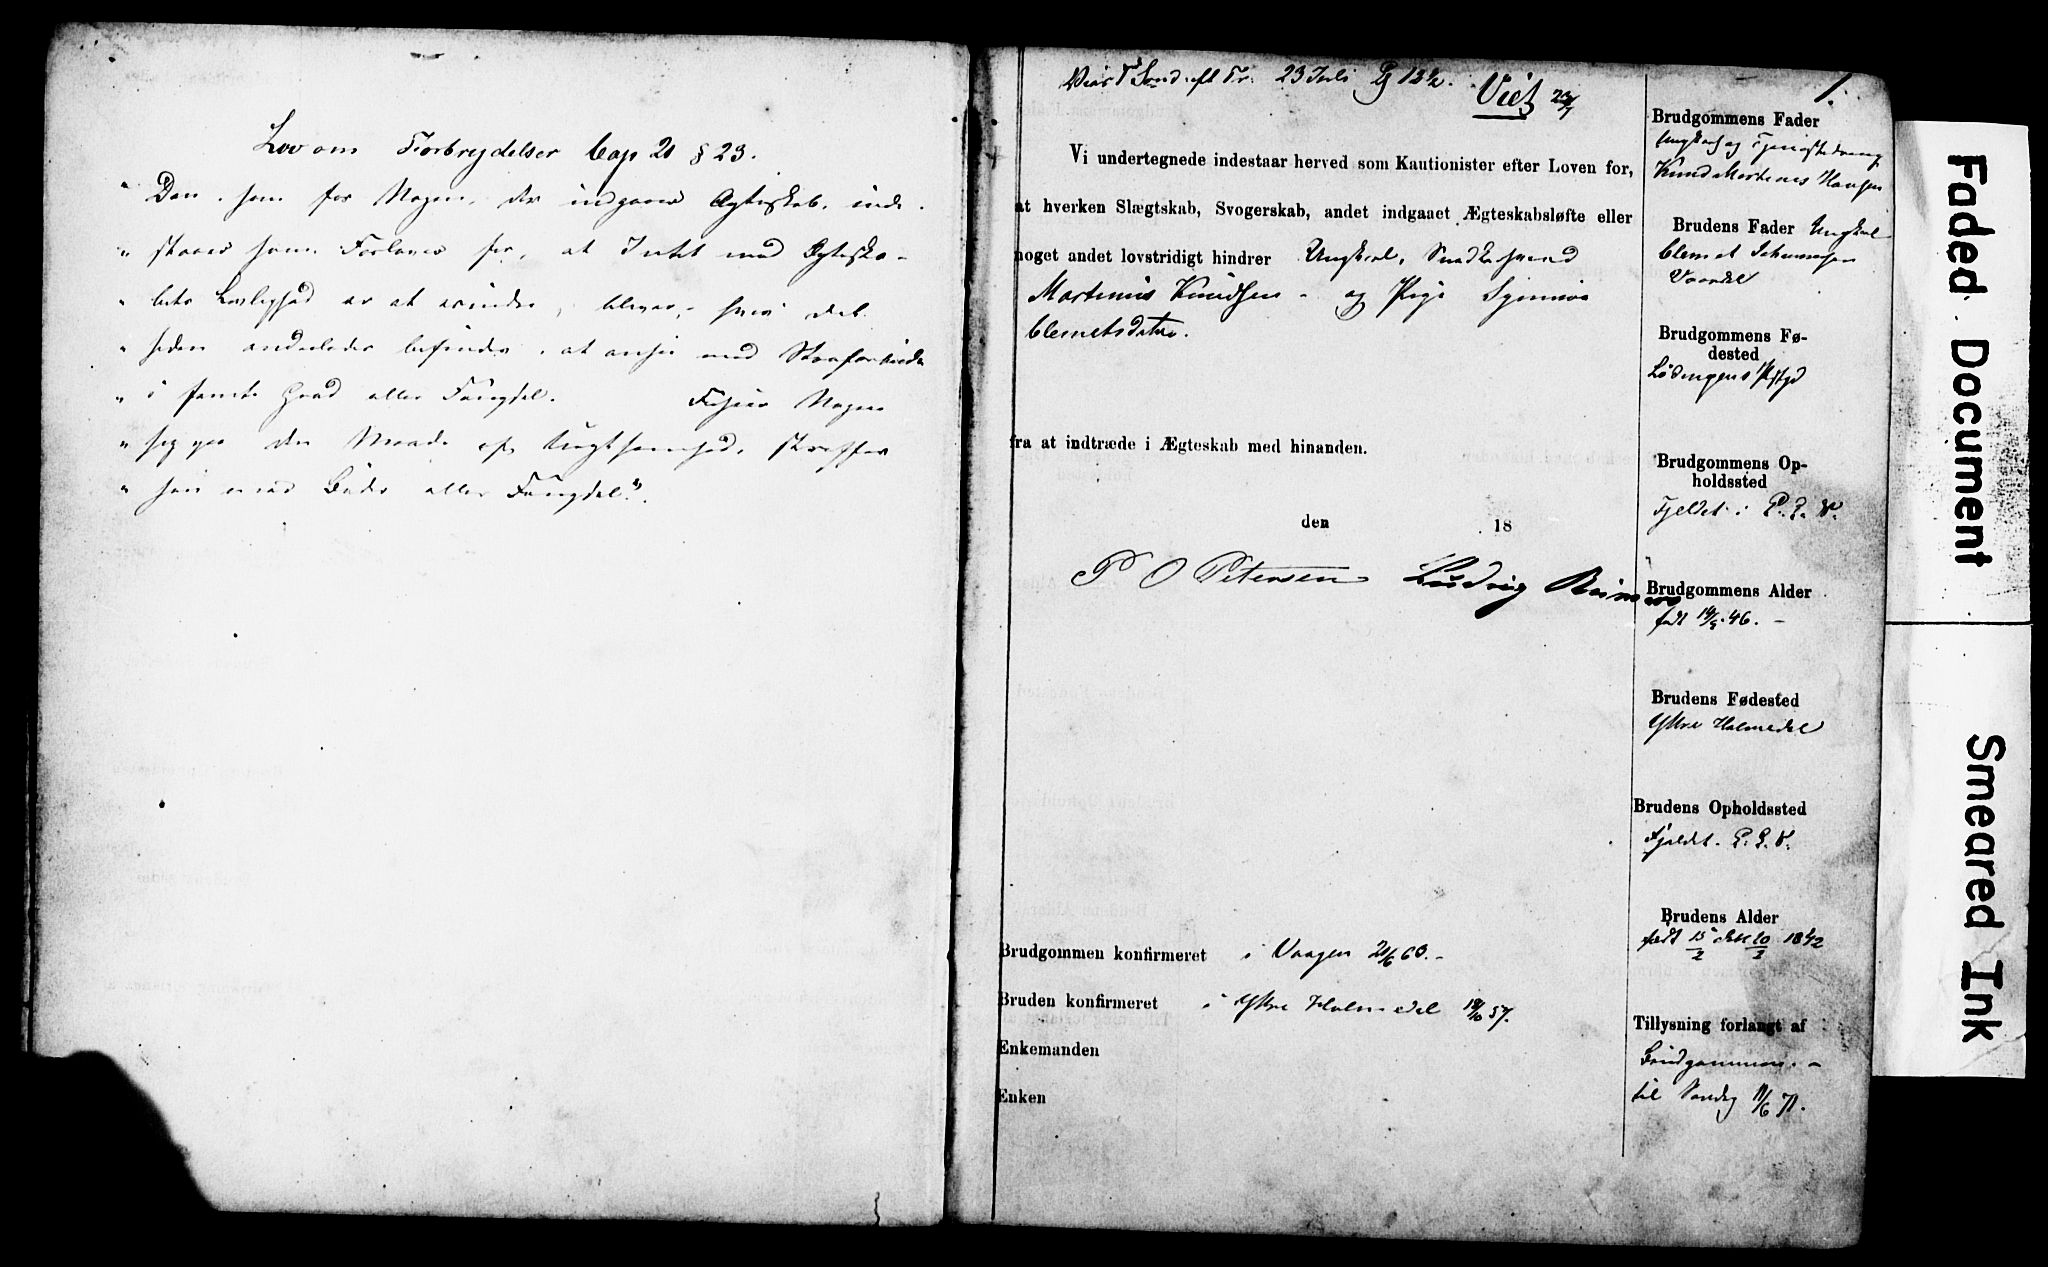 Lov om Forbrydelser Cap 21 § 23.
" Den, som for Nogen, der indgaaer Ægteskab, inde-
" staaer som Forlover for, at Intet med Ægteska-
" bets Lovlighed er at erindre, bliver, hvis det
" siden anderledes befindes, at ansee med Strafarbeide
" i femte Grad eller Fængsel. Nogen
" sig paa den Maade af Uagtsomhed, straffes
" han med Bøder eller Fængsel."
23 Juli Viet 23/7
1.
Vi undertegnede indestaar herved som Kautionister efter Loven for,
at hverken Slægtskab, Svogerskab, andet indgaaet Ægteskabsløfte eller
noget andet lovstridigt hindrer Ungkarl, Snedkersvend
Martinus Knudsen - og Pige Synneva
Clemetsdatter.
fra at indtræde i Ægteskab med hinanden.
den 18
P O Petersen Ludvig Reimers
Brudgommen konfirmeret i Vaagen 21/6 63. -
Bruden konfirmeret i Yttre Holmedal 18/10 57.
Enkemanden
Enken
Brudgommens Fader
Ungkarl og Tjenestedreng
Knud Martinus Hansen
Brudens Fader Ungkarl
Clemet Johannesen
Brudgommens Fø-
dested
Lødingens Pstgd
Brudgommens Op-
holdssted
Fjeldet i
Brudgommens Alder
født 14/9 46. -
Brudens Fødested
Yttre Holmedal
Brudens Opholdssted
Fjeldet.
Brudens Alder
født 15/2 døbt 20/2 1842
Tillysning forlangt af
Brudgommen. -
til Søndag 11/6 71.
Faded Document
Smeared Ink